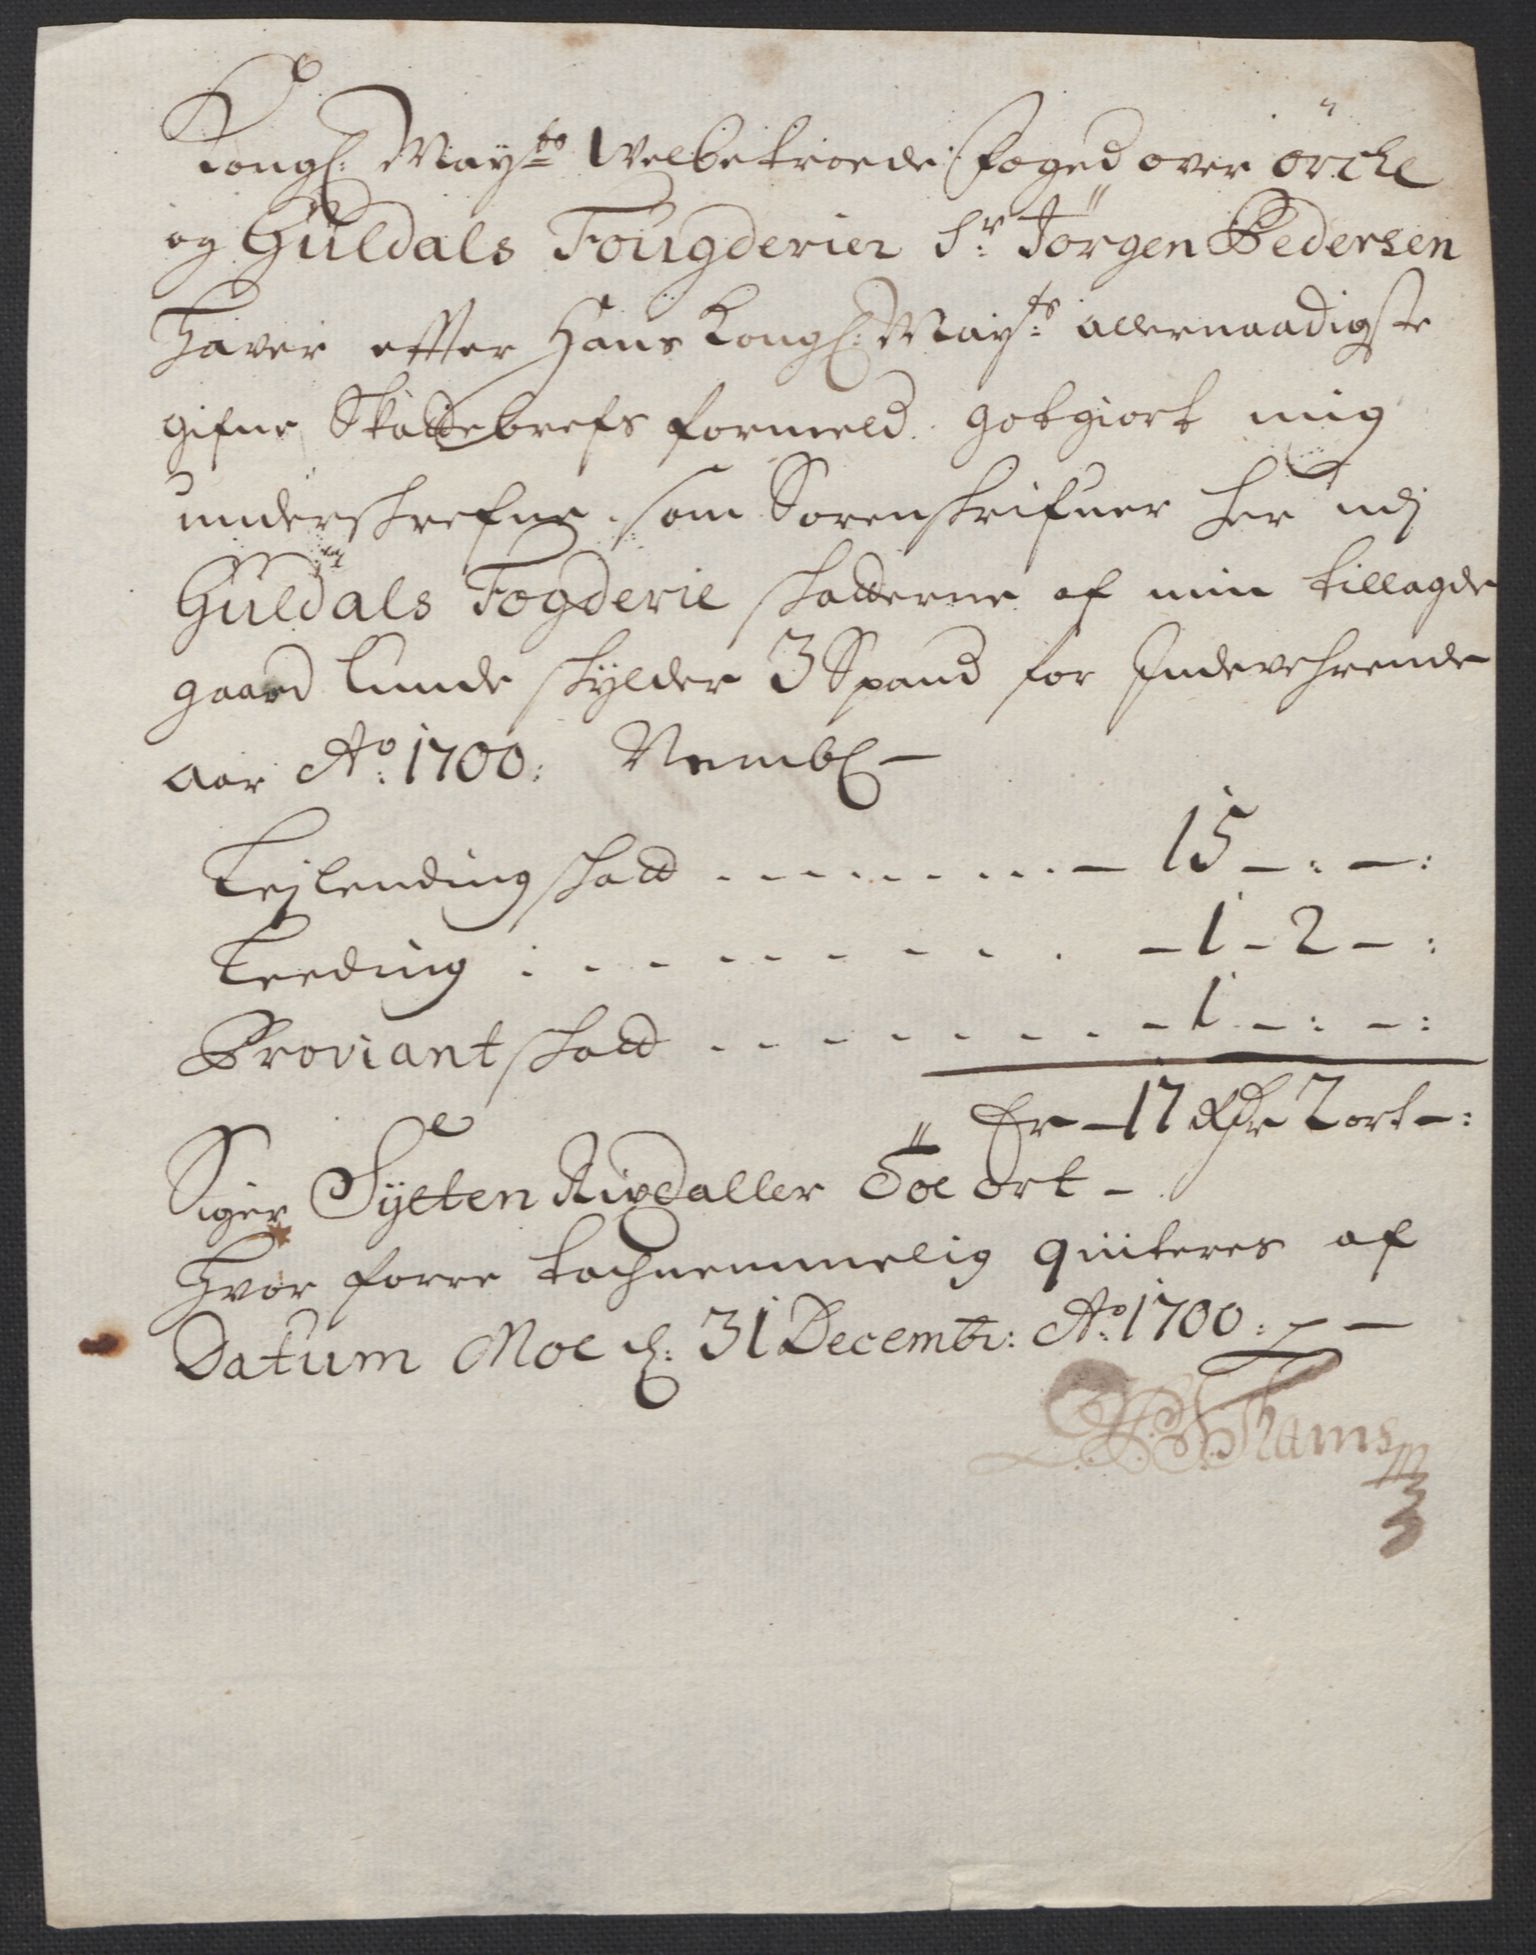 Kongl: Mayts Welbetroede Foged over örchl
og Guldals Fougderier Sr Jörgen Pedersen
Haver effter Hans Kongl: Mayts allernaadigste
gifne Skattebrefs formeld. gotgiort mig
underskrefne. som Sorenskrifuer her udj
Guldals Fogderie skatterne af min tillagde
gaard Lunde skylder 3 Spand for Indevehrende
aar Ao: 1700: Nembl –
Lejlending skatt . . . . . . . . – 15 – : – :
Leeding : . . . . . . . . – 1 – 2 – :
Proviant skatt . . . . . . . . – 1 – : – :
Er – 17 Rdr 2 ort – :
Siger Sÿtten Rixdaller Töe ort –
Hvor forre tachnemmelig quiteres af
Datum Moe d: 31 Decembr: Ao: 1700: – –
Thams